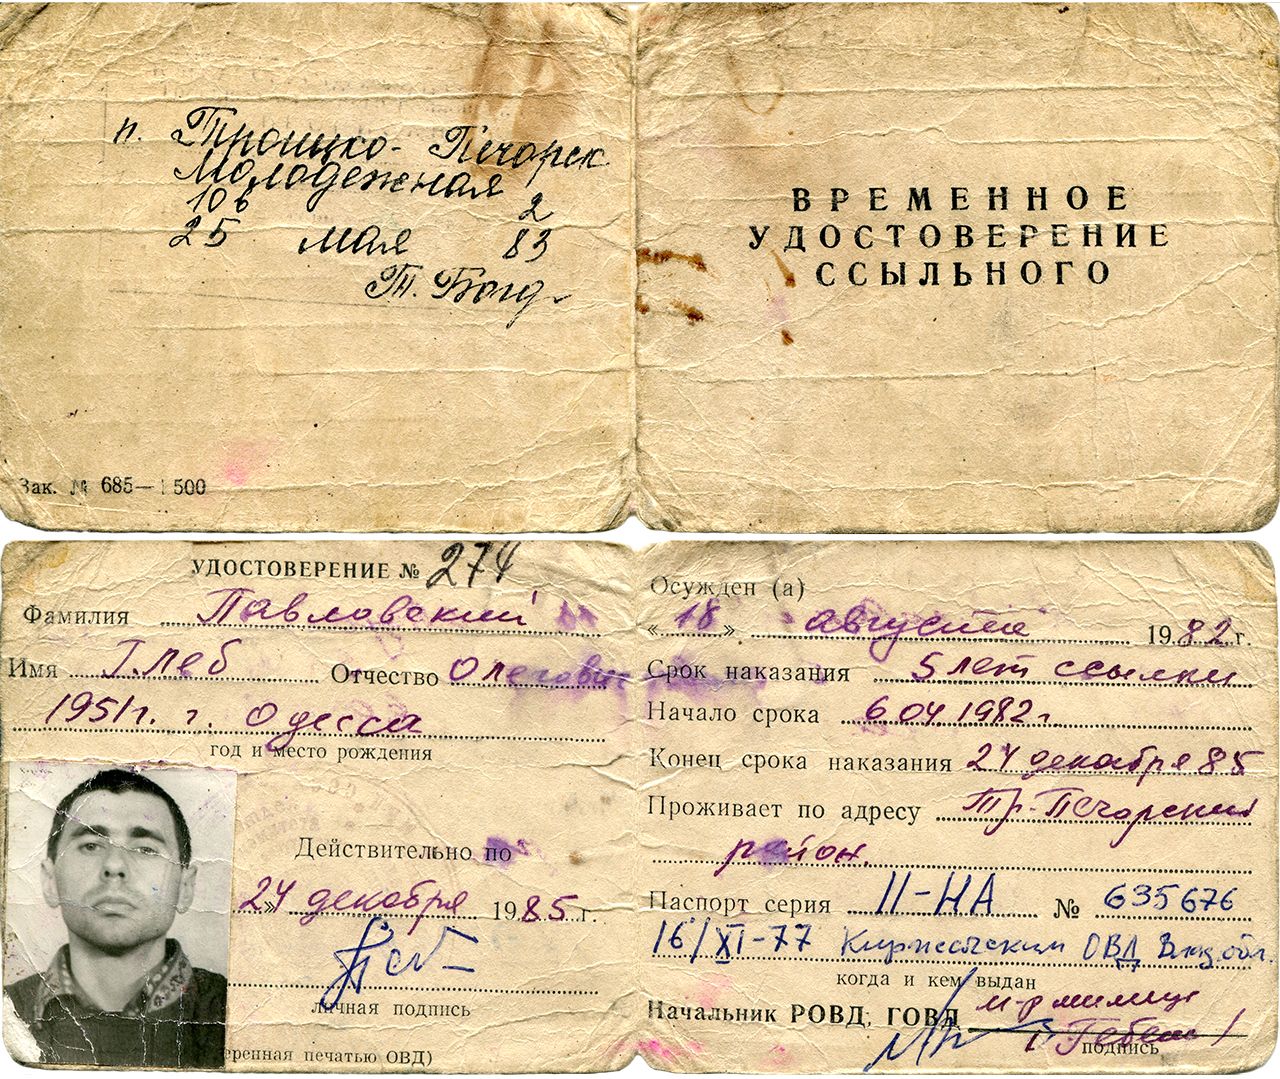 п. Троицко-Печорск
Молодежная
106 2
25 мая 83
Зак. № 685—1500
ВРЕМЕННОЕ
УДОСТОВЕРЕНИЕ
ССЫЛЬНОГО
УДОСТОВЕРЕНИЕ № 274
Фамилия Павловский
Имя Глеб Отчество Олегович
1951г. г. Одесса
год и место рождения
Действительно по
24 декабря 1985 г.
личная подпись
печатью ОВД)
Осужден (а)
«18» августа 1982 г.
Срок наказания 5 лет ссылки
Начало срока 6.04 1982г
Конец срока наказания 24 декабря 85
Проживает по адресу Тр-Печорский
район.
Паспорт серия II-НА № 635676
16/XI-77 Киржачским ОВД Влад обл.
когда и кем выдан
Начальник РОВД, ГОВД м-р милиции
подпись